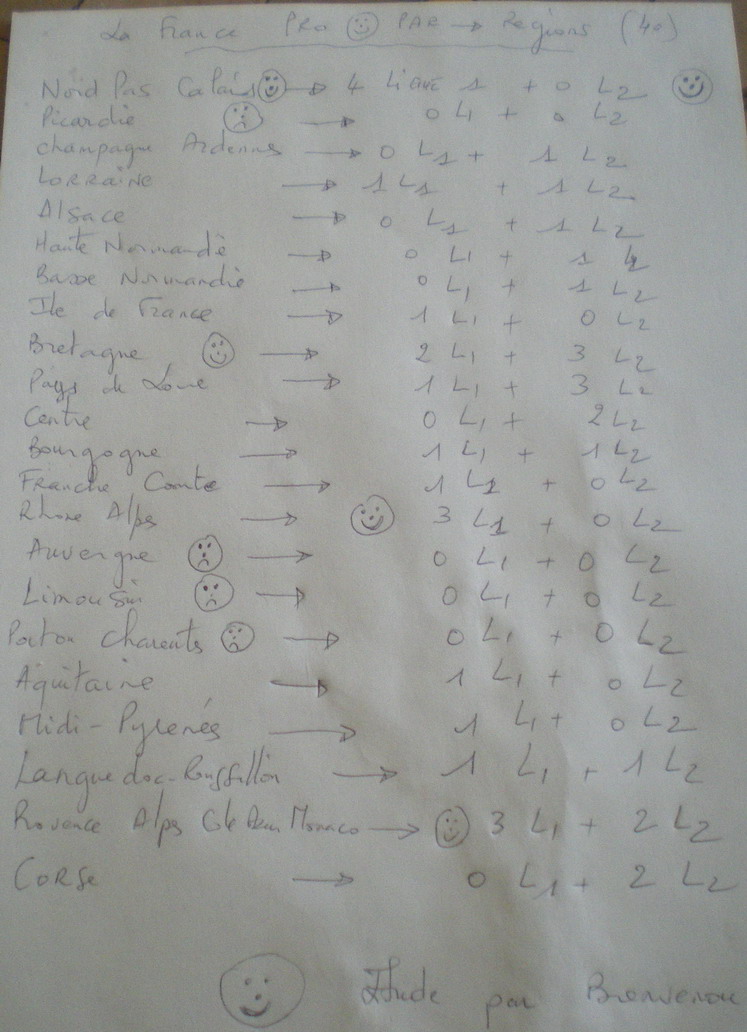 La France PRO PAR → Régions (40)
Nord Pas Calais → 4 Ligue 1 + 0 L2
Picardie → 0 L1 + 0 L2
Champagne Ardennes → 0 L1 + 1 L2
Lorraine → 1 L1 + 1 L2
Alsace → 0 L1 + 1 L2
Haute Normandie → 0 L1 + 1 L2
Basse Normandie → 0 L1 + 1 L2
Ile de France → 1 L1 + 0 L2
Bretagne → 2 L1 + 3 L2
Pays de Loire → 1 L1 + 3 L2
Centre → 0 L1 + 2 L2
Bourgogne → 1 L1 + 1 L2
Franche Comte → 1 L1 + 0 L2
Rhone Alps → 3 L1 + 0 L2
Auvergne → 0 L1 + 0 L2
Limousin → 0 L1 + 0 L2
Poitou Charents → 0 L1 + 0 L2
Aquitaine → 1 L1 + 0 L2
Midi-Pyrenés → 1 L1 + 0 L2
Languedoc-Roussillon → 1 L1 + 1 L2
Provence Alps Monaco → 3 L1 + 2 L2
Corse → 0 L1 + 2 L2
Etude par